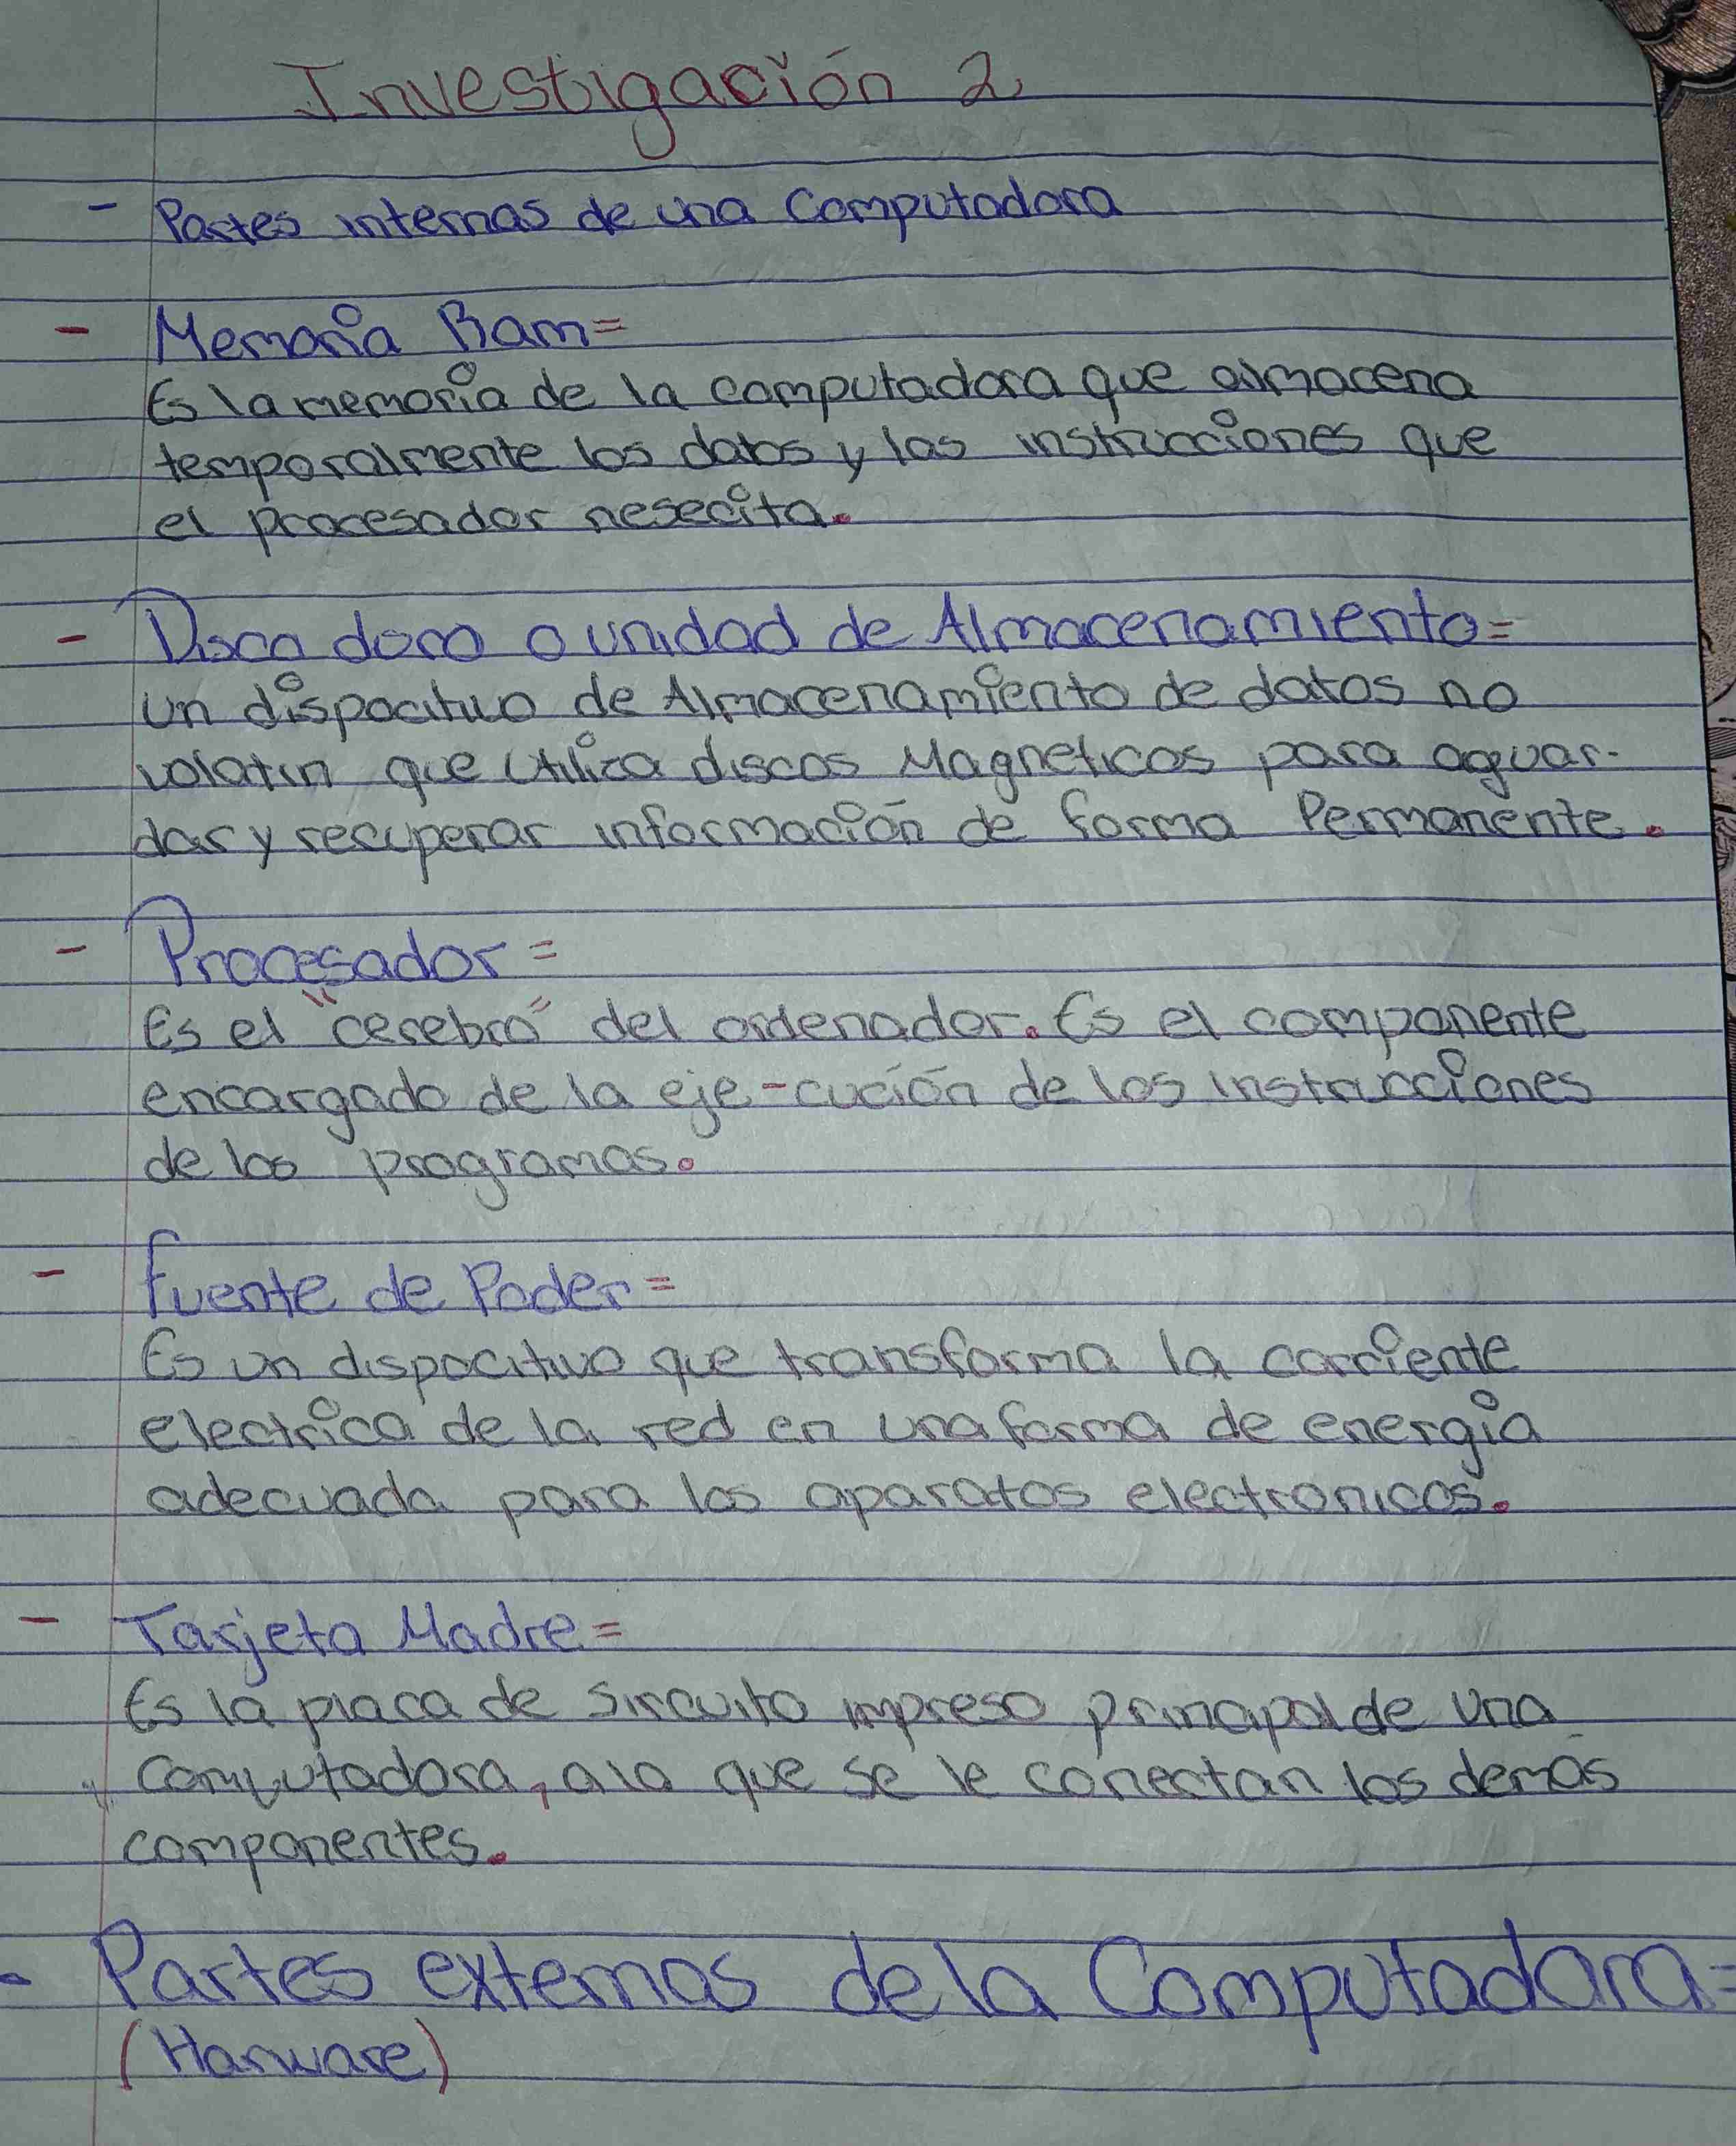 Investigación 2
- Partes internas de una Computadora
- Memoria Ram=
Es la memoria de la computadora que almacena
temporalmente los datos y las instrucciones que
el procesador nesecita.
- Disco duro o unidad de Almacenamiento=
un dispocitivo de Almacenamiento de datos no
volatin que utiliza discos Magneticos para aguar-
dar y recuperar información de forma Permanente.
- Procesador=
Es el "cerebro" del ordenador. Es el componente
encargado de la eje-cución de los instrucciones
de los programas.
- Fuente de Poder=
Es un dispocitivo que transforma la corriente
electrica de la red en una forma de energia
adecuada para los aparatos electronicos.
- Tarjeta Madre=
Es la placa de sircuito impreso principal de una
Computadora, a la que se le conectan los demás
componentes.
- Partes externas de la Computadora=
(Harware)